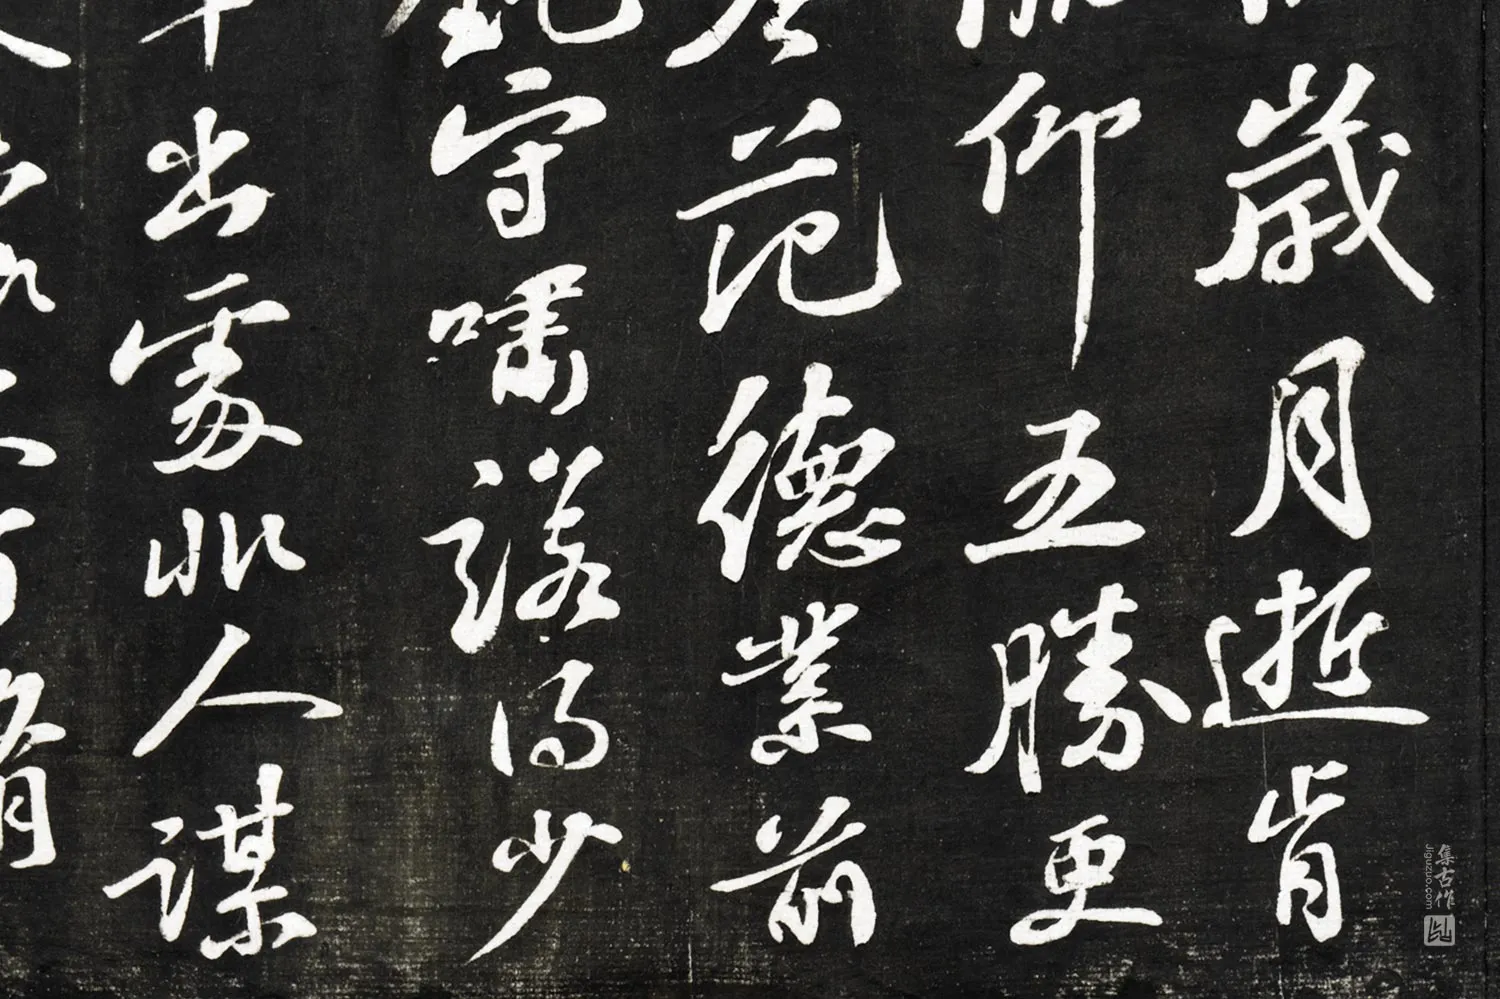 歲月逝肯
仰五勝更
范德業前
守嘯諾得少
出處非人謀
集古作
jiguzuo.com